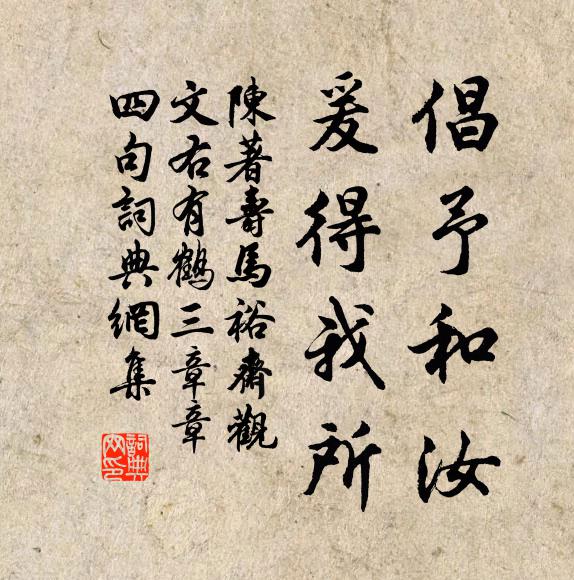 倡予和汝
爰得我所
陳著壽馬裕齋觀
文右有鶴三章章
四句詞典網集
詞典網印